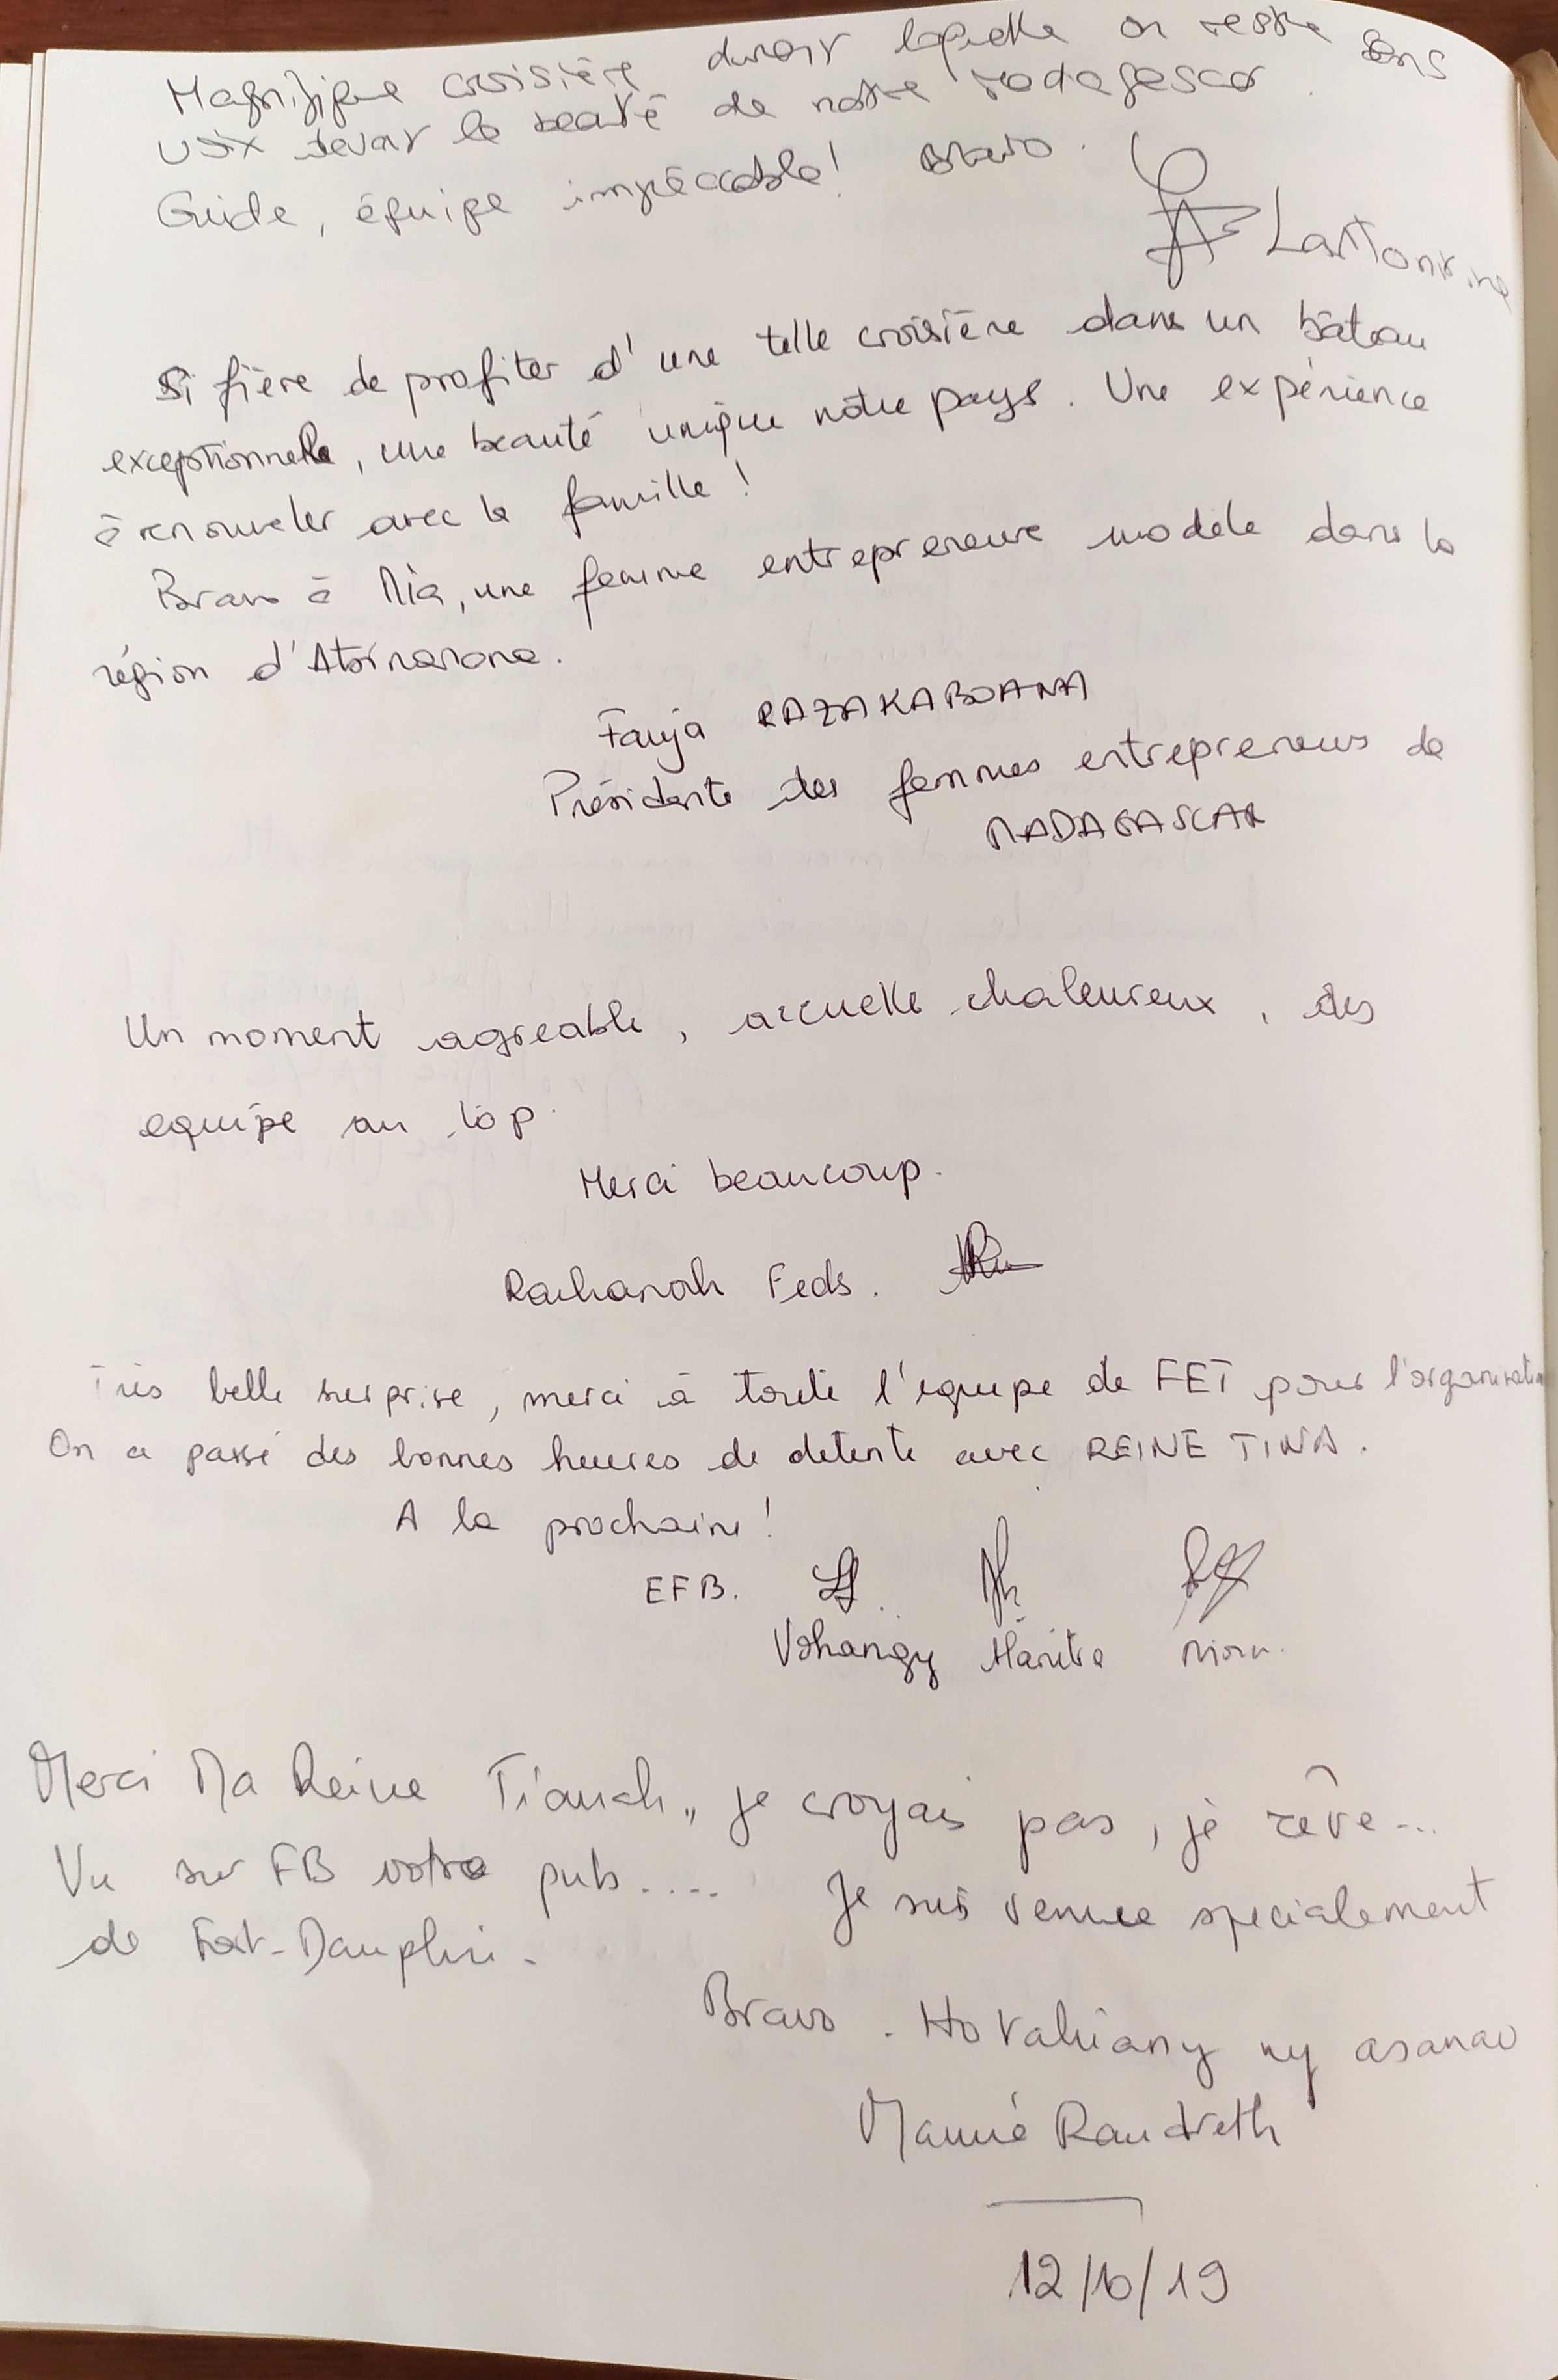 Magnifique croisière durant laquelle on reste sans
voix devant la beauté de notre Madagascar.
Guide, équipe impéccable! Bravo.
Si fière de profiter d'une telle croisière dans un bâteau
exceptionnelle, une beauté unique notre pays. Une expérience
à renouveler avec la famille !
Bravo à Mia, une femme entrepreneure modèle dans la
région d'Atsinanana.
Fanja RAZAKABOANA
Présidente des femmes entrepreneurs de
MADAGASCAR
Un moment agreable, accuelle chaleureux, des
equipe au top.
Merci beaucoup.
Feds.
Très belle surprise, merci à toute l'équipe de FET pour l'organisation
On a passé des bonnes heures de detente avec REINE TINA.
A la prochaine !
EFB.
Vohangy Hanitra
Merci Ma Reine je croyais pas, je rêve...
Vu sur FB votre pub.... Je suis venue specialement
de Fort-Dauphin.
Bravo. Ho vahiany ny asanao
Randreth
12/10/19